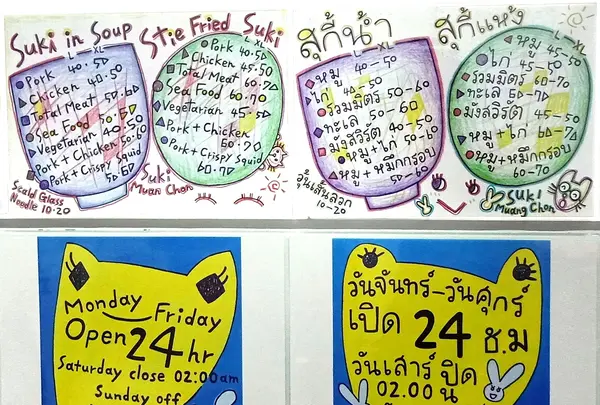 Suki in Soup
L XL
Pork 40-50
Chicken 40-50
Total Meat 50-60
Sea Food 50-60
Vegetarian 40-50
Pork + Chicken 50-60
Pork + Crispy Squid
50-60
Scald Glass
Noodle 10-20
Stie Fried Suki
L XL
Pork 45-50
Chicken 45-50
Total Meat 60-70
Sea Food 60-70
Vegetarian 45-50
Pork + Chicken
60-70
Pork + Crispy Squid
60-70
Suki
Muan Chon
สุกี้น้ำ
L XL
หมู 40-50
ไก่ 40-50
รวมมิตร 50-60
ทะเล 50-60
มังสวิรัติ 40-50
หมู+ไก่ 50-60
หมู+หมึกกรอบ
50-60
วุ้นเส้นลวก
10-20
สุกี้แห้ง
L XL
หมู 45-50
ไก่ 45-50
รวมมิตร 60-70
ทะเล 60-70
มังสวิรัติ 45-50
หมู+ไก่ 60-70
หมู+หมึกกรอบ
60-70
Suki
Muang Chon
Monday - Friday
Open 24 hr
Saturday close 02:00am
Sunday off
วันจันทร์-วันศุกร์
เปิด 24 ช.ม
วันเสาร์ ปิด
02.00 น